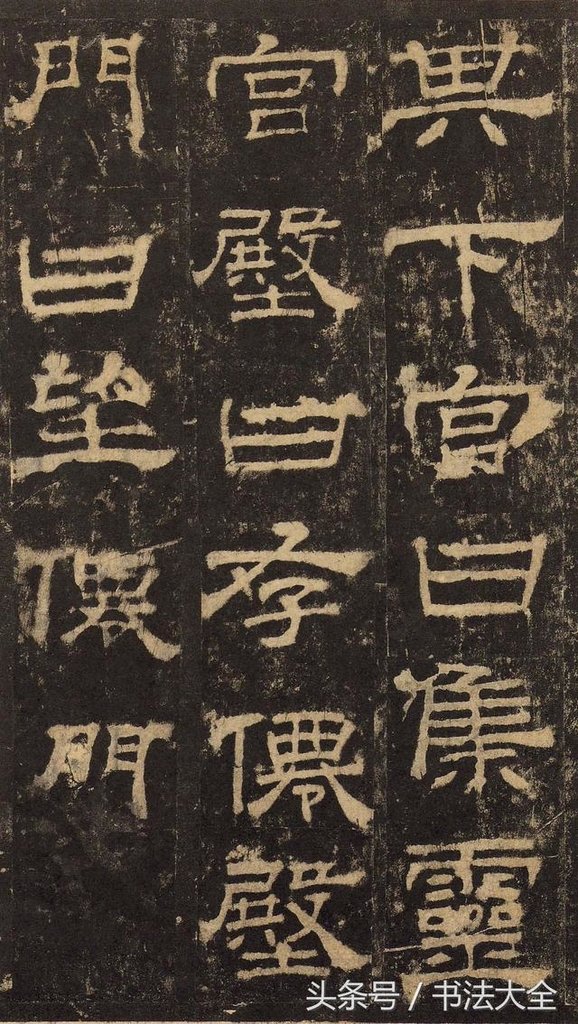 其下宫曰集靈
宫殿曰存僊殿
門曰望僊門
头条号 / 书法大全